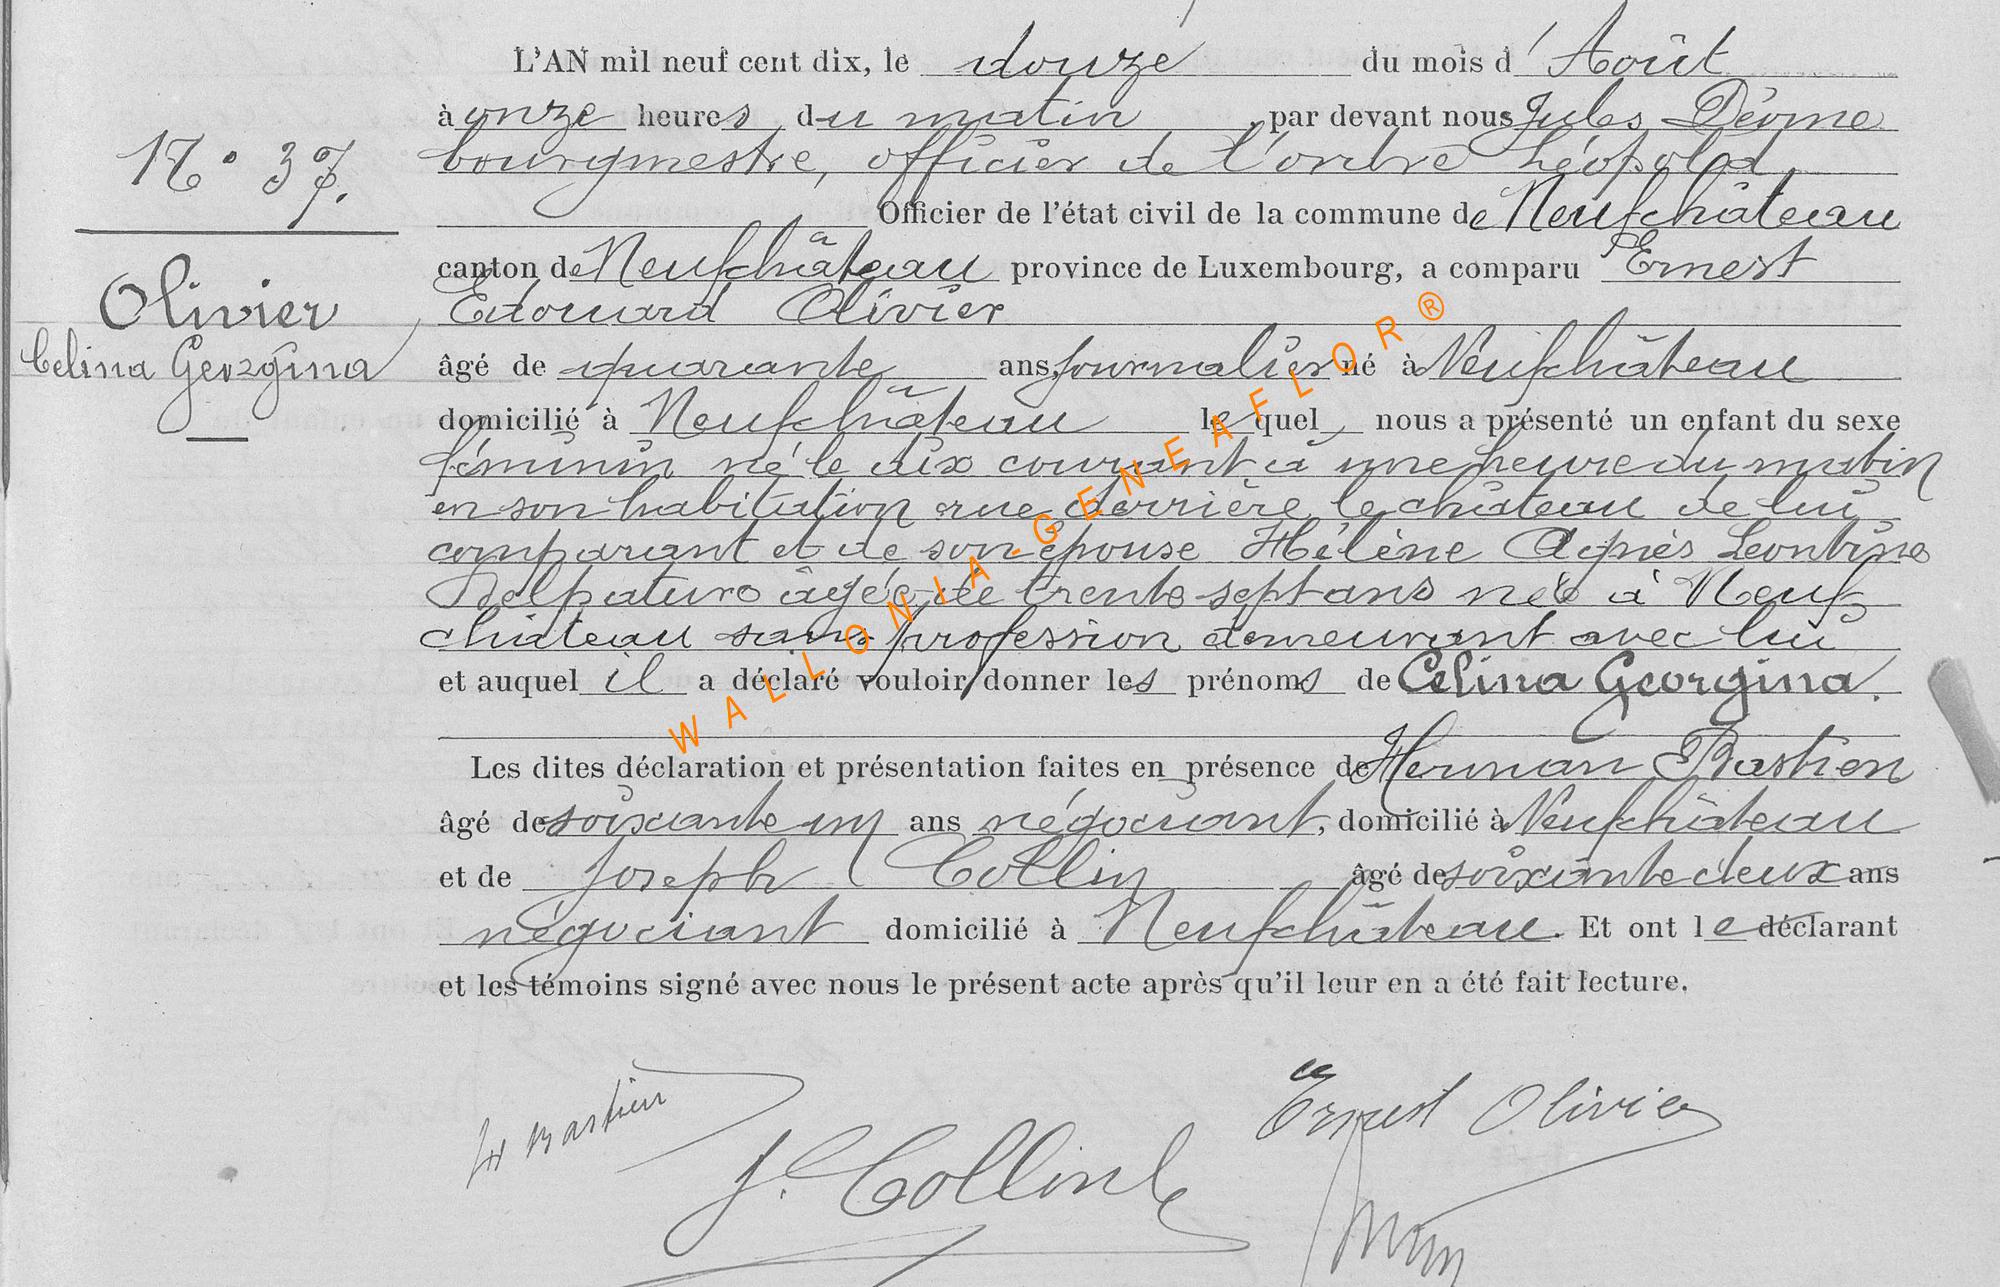 L'AN mil neuf cent dix, le douze du mois d'Août
à onze heures du matin, par devant nous Jules
bourgmestre, officier de l'ordre Léopold,
Officier de l'état civil de la commune de Neufchâteau
N° 37.
canton de Neufchâteau province de Luxembourg, a comparu Ernest
Edouard Olivier
Olivier
Celina Georgina
âgé de quarante ans, journalier né à Neufchâteau
domicilié à Neufchâteau lequel nous a présenté un enfant du sexe
féminin né le dix courant à une heure du matin
en son habitation rue derrière le château de lui
comparant et de son épouse Hélène Agnès Léontine
Delpature âgée de trente sept ans née à Neuf
château sans profession demeurant avec lui
et auquel il a déclaré vouloir donner les prénoms de Célina Georgina.
Les dites déclaration et présentation faites en présence de Herman Bastien
âgé de soixante un ans négociant, domicilié à Neufchâteau
et de Joseph Collin âgé de soixante deux ans
négociant domicilié à Neufchâteau. Et ont le déclarant
et les témoins signé avec nous le présent acte après qu'il leur en a été fait lecture.
WALLONIA-GENEAFLOR®
H Bastien
Ernest Olivier
J. Collin